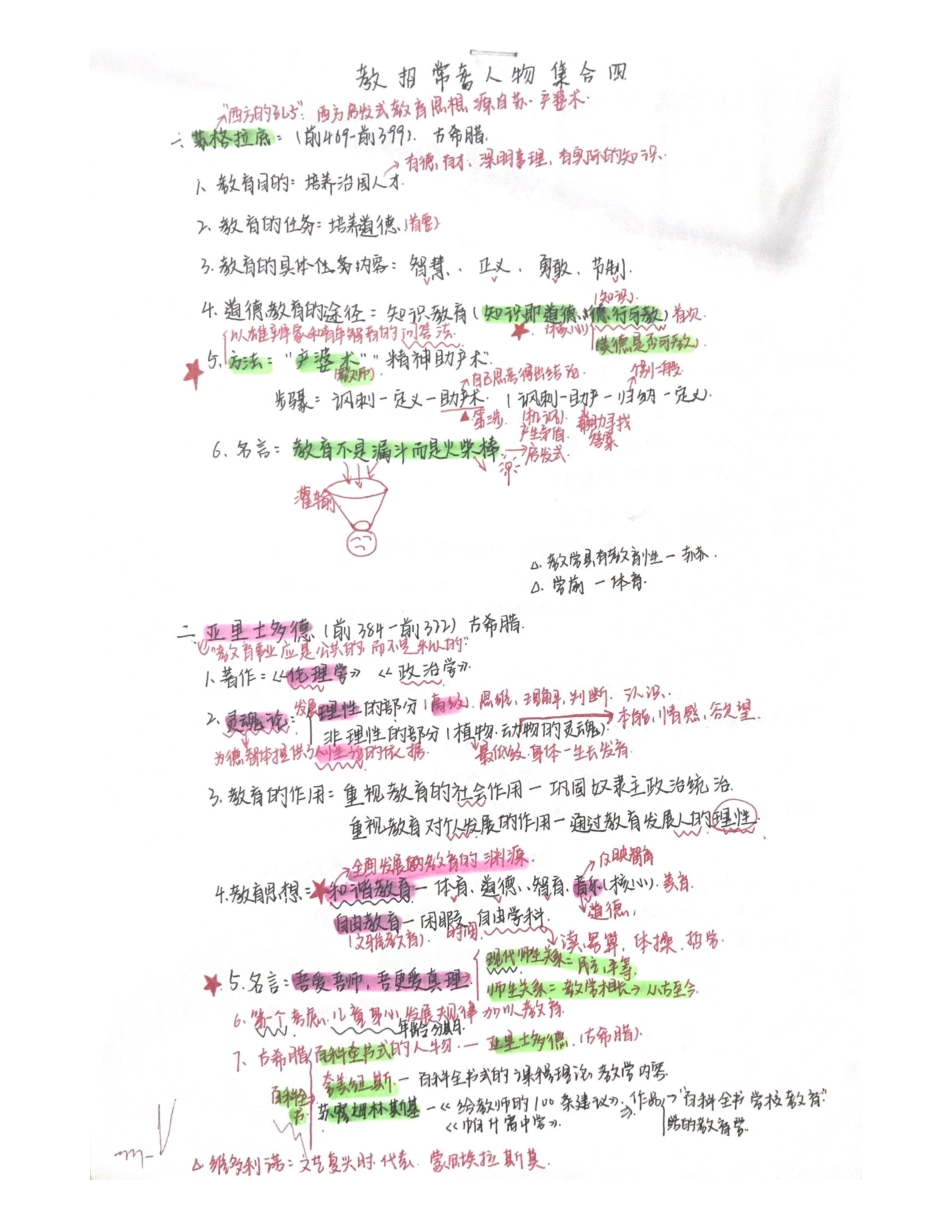 教招常考人物集合四
"西方的孔子": 西方启发式教育思想, 源自苏-产婆术.
一. 苏格拉底: (前469-前399). 古希腊.
→有德有才、深明事理、有实际的知识.
1. 教育目的: 培养治国人才.
2. 教育的任务: 培养道德. (首要)
3. 教育的具体任务内容: 智慧、正义、勇敢、节制.
(知识).
4. 道德教育的途径: 知识教育 (知识即道德、德行可教) 首次
(核心)
美德是否可教
以雄辩家和青年智者的问答法.
5. 方法: "产婆术" "精神助产术".
(教师)
→自己思考得出结论
步骤: 讽刺-定义-助产术. (讽刺-助产-归纳-定义.
第三 (机讽) 产生矛盾 启发式
帮助寻找答案
6. 名言: 教育不是漏斗而是火柴棒.
灌输
△. 教学具有教育性-赫.
△. 学前-体育.
二. 亚里士多德. (前384-前322) 古希腊.
"教育事业应是公共的, 而不是私的"
1. 著作: 《伦理学》《政治学》.
2. 灵魂论: 发展 理性的部分 (高级). 思维、理解、判断. 认识.
非理性的部分 (植物. 动物的灵魂). →本能, 情感, 欲望
为德智体提供了人性论的依据. 最低级. 身体-生长发育.
3. 教育的作用: 重视教育的社会作用-巩固奴隶主政治统治.
重视教育对个人发展的作用-通过教育发展人的理性.
全面发展的教育的渊源. →反映智育
4. 教育思想: 和谐教育-体育、道德、智育、音乐(核心). 美育.
→道德.
自由教育-闲暇、自由学科.
(文雅教育). 时间. →读、写、算、体操、哲学
5. 名言: 吾爱吾师, 吾更爱真理.
现代师生关系=民主平等.
师生关系=教学相长→从古至今.
6. 第一个考虑儿童身心发展规律加以教育.
年龄分期.
7. 古希腊百科全书式的人物.-亚里士多德. (古希腊).
百科全书
夸美纽斯.-百科全书式的课程理论教学内容.
苏霍姆林斯基-《给教师的100条建议》. 作品→"百科全书 学校教育"
《帕夫雷什中学》. 活的教育学.
△ 维多利诺: 文艺复兴时代表. 蒙